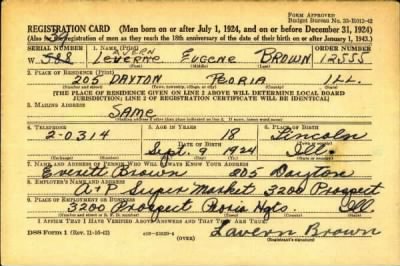 FORM APPROVED
Budget Bureau No. 33-R012-42
REGISTRATION CARD (Men born on or after July 1, 1924, and on or before December 31, 1924)
(Also for registration of men as they reach the 18th anniversary of the date of their birth on or after January 1, 1943.)
SERIAL NUMBER 1. NAME (Print) ORDER NUMBER
LAVERN
W- 588 LeVerne Eugene Brown 12555
(First) (Middle) (Last)
2. PLACE OF RESIDENCE (Print)
205 DAYTON PEORIA ILL.
(Number and street) (Town, township, village, or city) (County) (State)
[THE PLACE OF RESIDENCE GIVEN ON LINE 2 ABOVE WILL DETERMINE LOCAL BOARD
JURISDICTION; LINE 2 OF REGISTRATION CERTIFICATE WILL BE IDENTICAL]
3. MAILING ADDRESS
SAME
4. TELEPHONE 5. AGE IN YEARS 6. PLACE OF BIRTH
2-0314 18 Lincoln
DATE OF BIRTH
Sept. 9 1924 Ill.
(Mo.) (Day) (Yr.)
7. NAME AND ADDRESS OF PERSON WHO WILL ALWAYS KNOW YOUR ADDRESS
Everett Brown 205 Dayton
8. EMPLOYER'S NAME AND ADDRESS
A&P Super Market 3200 Prospect
9. PLACE OF EMPLOYMENT OR BUSINESS
3200 Prospect Peoria Hgts. Ill.
(Number and street or R. F. D. number) (Town) (County) (State)
I AFFIRM THAT I HAVE VERIFIED ABOVE ANSWERS AND THAT THEY ARE TRUE.
DSS Form 1 (Rev. 11-16-42) (OVER) Lavern Brown
(Registrant's signature)